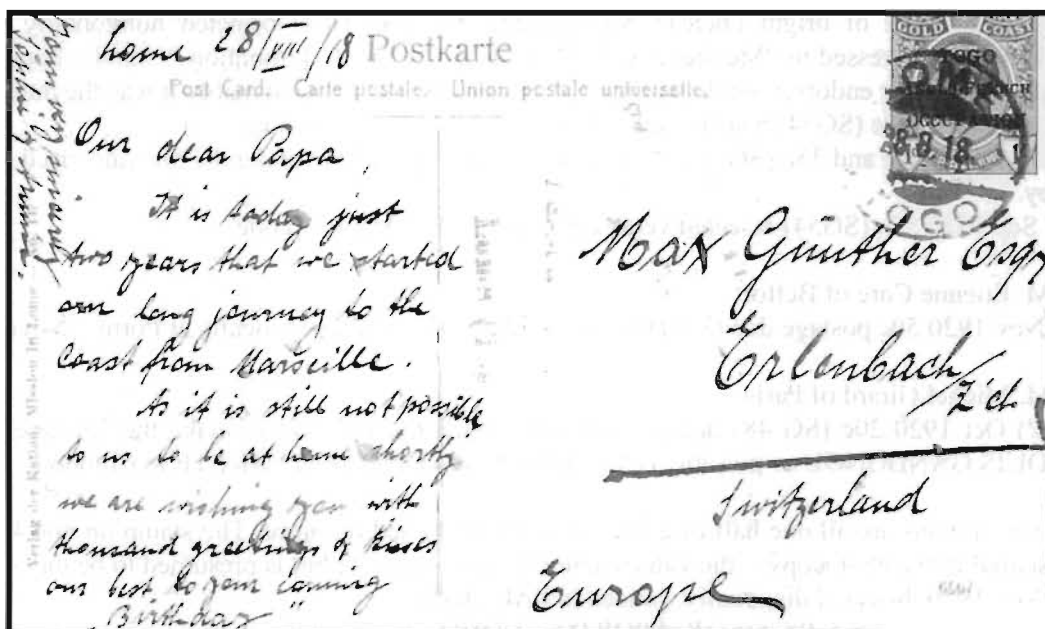 Lome 28/VIII/18
Postkarte
Post Card. Carte postale. Union postale universelle.
Our dear Papa,
It is today just
two years that we started
our long journey to the
Coast from Marseille.
As it is still not possible
to us to be at home shortly
we are wishing you with
thousand greetings & kisses
our best, to your coming
Birthday"
Your very
GOLD COAST
TOGO
OCCUPATION
28.8.18
TOGO
Max Günther Esqr
Erlenbach/
Zch.
Switzerland
Europe
Verlag der Kathol. Mission in Lome